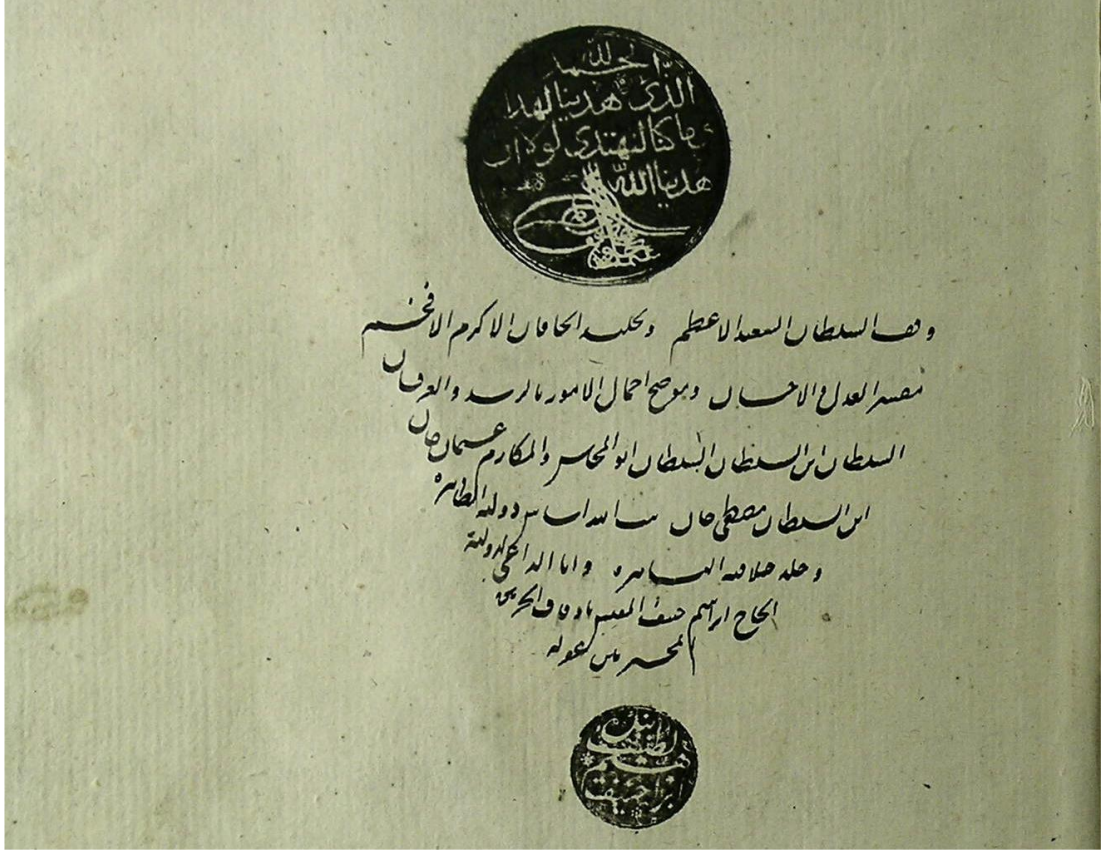 الحمد لله
الذى هدينا لهذا
وما كنا لنهتدى لولا ان
هدينا الله
وقف السلطان السعيد الاعظم والخاقان الاكرم الافخم
العدل والاحسان وموضح اجمال الامور بالرشد والعرفان
السلطان ابن السلطان السلطان ابو المحاسن والمكارم عثمان خان
ابن السلطان مصطفى خان الله اساس دولته
وخلد خلافته وانا الداعى لدولته
الحاج ابراهيم حنيف المفتش باوقاف الحرمين
المحترمين
ابراهيم حنيف